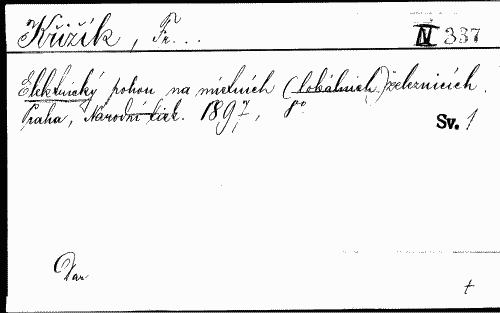 Křižík, Fr... IV 337
Elektrický pohon na místních (lokálních) železnicích.
Praha, Národní tisk. 1897, 8°
Sv. 1
Dar
†